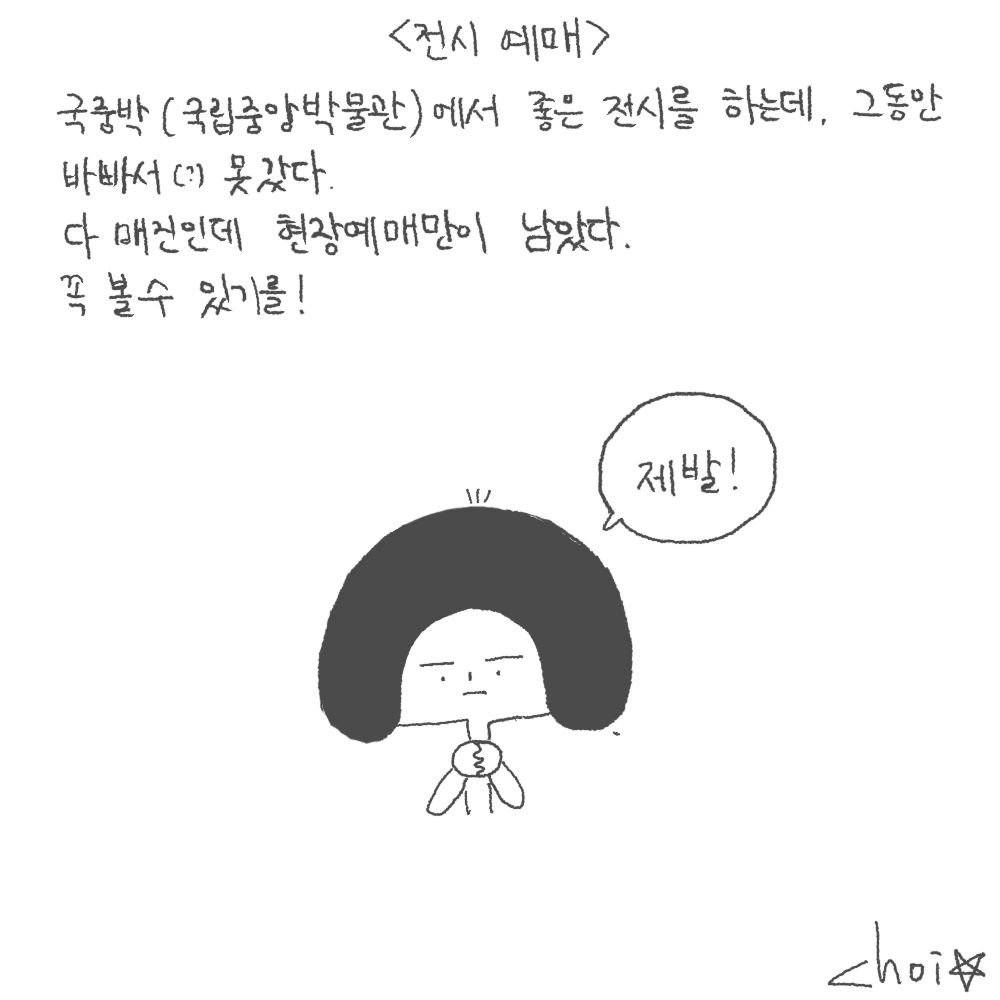 <전시 예매>
국중박 (국립중앙박물관)에서 좋은 전시를 하는데, 그동안
바빠서(?) 못갔다.
다 매진인데 현장예매만이 남았다.
꼭 볼수 있기를!
제발!
choi☆